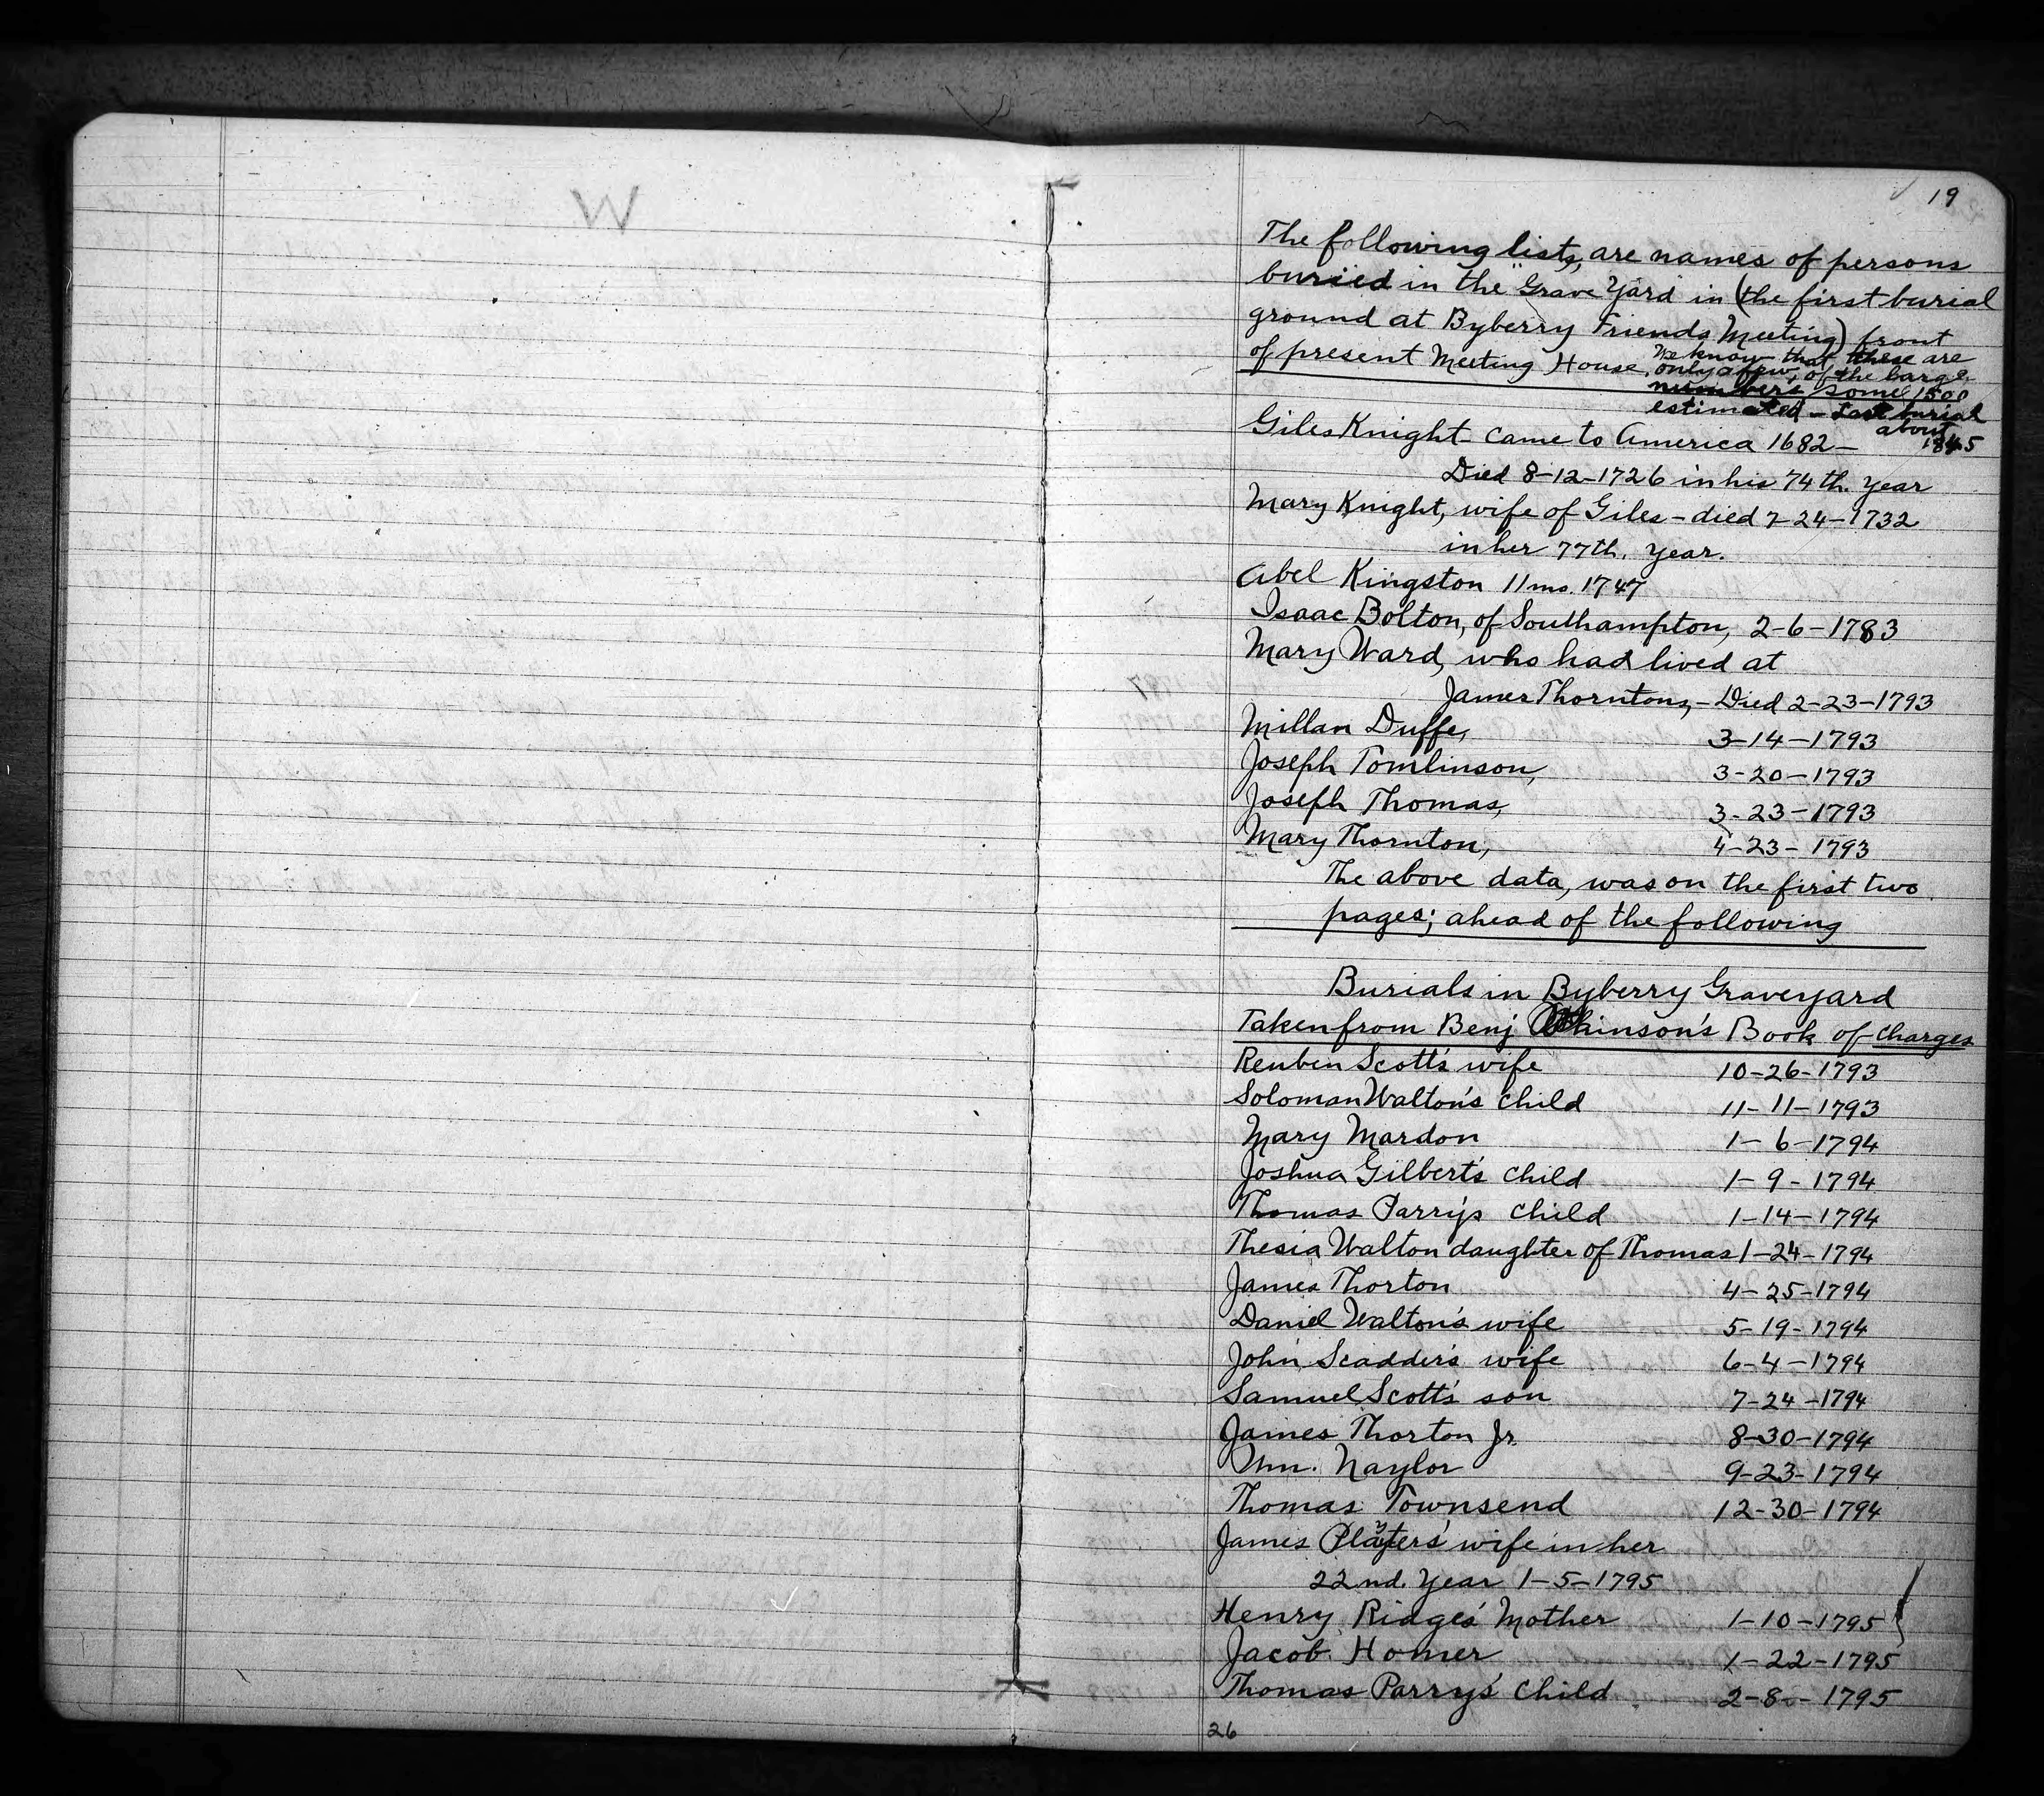 W
19
The following lists, are names of persons
buried in the "Grave Yard in (the first burial
ground at Byberry Friends Meeting) front
of present Meeting House. We know that these are
only a few, of the large
numbers some 1500
estimated - Last burial
about
1845
Giles Knight - Came to America 1682 -
Died 8-12-1726 in his 74th. year
Mary Knight, wife of Giles - died 7-24-1732
in her 77th. year.
Abel Kingston 11 mo. 1747
Isaac Bolton, of Southampton, 2-6-1783
Mary Ward, who had lived at
James Thorntons, - Died 2-23-1793
Millan Duffe, 3-14-1793
Joseph Tomlinson, 3-20-1793
Joseph Thomas, 3-23-1793
Mary Thornton, 4-23-1793
The above data, was on the first two
pages; ahead of the following
Burials in Byberry Graveyard
Taken from Benj Atkinson's Book of Charges
Reuben Scott's wife 10-26-1793
Soloman Walton's child 11-11-1793
Mary Mardon 1-6-1794
Joshua Gilbert's child 1-9-1794
Thomas Parry's child 1-14-1794
Thesia Walton daughter of Thomas 1-24-1794
James Thorton 4-25-1794
Daniel Walton's wife 5-19-1794
John Scadder's wife 6-4-1794
Samuel Scott's son 7-24-1794
James Thorton Jr. 8-30-1794
Wm. Naylor 9-23-1794
Thomas Townsend 12-30-1794
James Playters' wife in her
22nd. Year 1-5-1795
Henry Ridges' Mother 1-10-1795
Jacob Homer 1-22-1795
Thomas Parry's child 2-8-1795
26